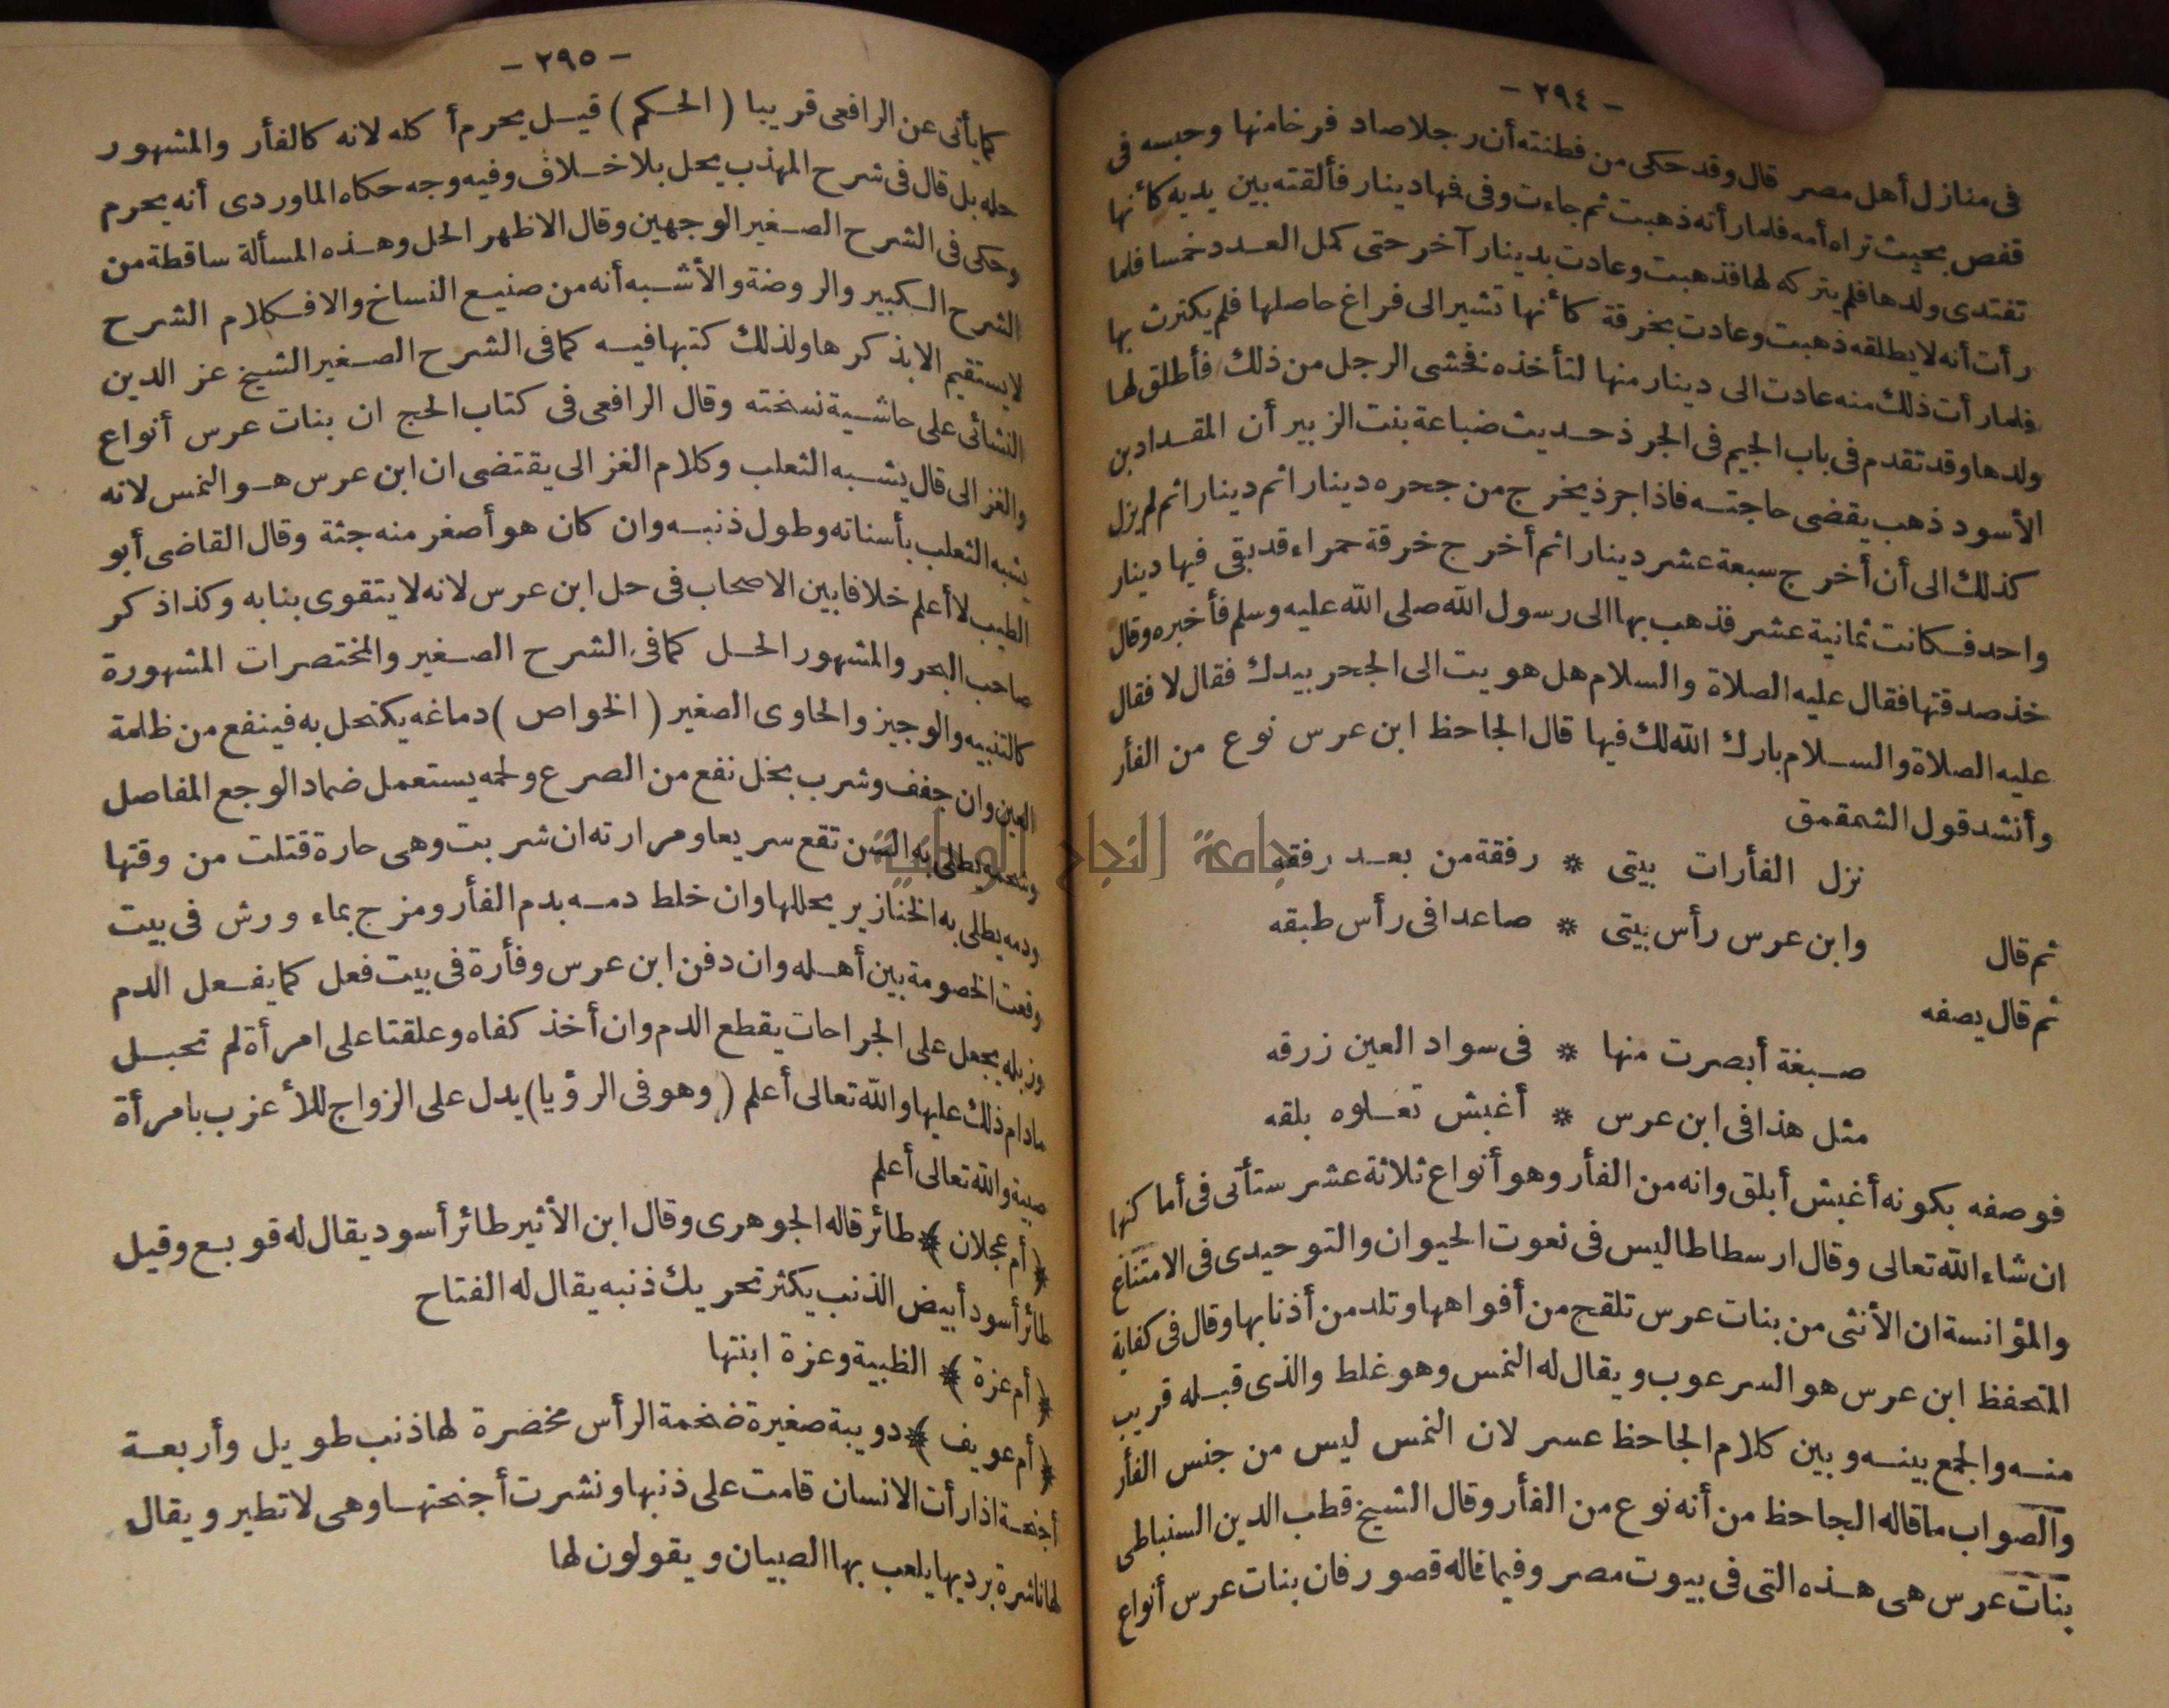 - ٢٩٤ -
فى منازل أهل مصر قال وقد حكى من فطنته أن رجلا صاد فرخا منها وحبسه فى
قفص بحيث تراه أمه فلما رأته ذهبت ثم جاءت وفى فها دينار فألقته بين يديه كأنها
تفتدى ولدها فلم يتركه لها فذهبت وعادت بدينار آخر حتى كمل العدد خمسا فلما
رأت أنه لا يطلقه ذهبت وعادت بخرقة كأنها تشير الى فراغ حاصلها فلم يكترث بها
فلما رأت ذلك منه عادت الى دينار منها لتأخذه فخشى الرجل من ذلك فأطلق لها
ولدها وقد تقدم فى باب الجيم فى الجرذ حديث ضباعة بنت الزبير أن المقداد بن
الأسود ذهب يقضى حاجته فاذا جرذ يخرج من جحره دينارا ثم دينارا ثم لم يزل
كذلك الى أن أخرج سبعة عشر دينارا ثم أخرج خرقة حمراء قد بقى فيها دينار
واحد فكانت ثمانية عشر فذهب بها الى رسول الله صلى الله عليه وسلم فأخبره وقال
خذ صدقتها فقال عليه الصلاة والسلام هل هويت الى الجحر بيدك فقال لا فقال
عليه الصلاة والسلام بارك الله لك فيها قال الجاحظ ابن عرس نوع من الفأر
وأنشد قول الشمقمق
نزل الفأرات بيتى * رفقة من بعد رفقه
ثم قال وابن عرس رأس بيتى * صاعدا فى رأس طبقه
ثم قال يصفه
صبغة أبصرت منها * فى سواد العين زرقه
مثل هذا فى ابن عرس * أغبش تعلوه بلقه
فوصفه بكونه أغبش أبلق وانه من الفأر وهو أنواع ثلاثة عشر ستأتى فى أماكنها
ان شاء الله تعالى وقال ارسطاطاليس فى نعوت الحيوان والتوحيدى فى الامتناع
والمؤانسة ان الأنثى من بنات عرس تلقح من أفواهها وتلد من أذنابها وقال فى كفاية
المتحفظ ابن عرس هو السرعوب ويقال له النمس وهو غلط والذى قبله قريب
منه والجمع بينه وبين كلام الجاحظ عسر لان النمس ليس من جنس الفأر
والصواب ما قاله الجاحظ من أنه نوع من الفأر وقال الشيخ قطب الدين السنباطى
بنات عرس هى هذه التى فى بيوت مصر وفيما قاله قصور فان بنات عرس أنواع
- ٢٩٥ -
كما يأتى عن الرافعى قريبا (الحكم) قيل يحرم أكله لانه كالفأر والمشهور
حله بل قال فى شرح المهذب يحل بلا خلاف وفيه وجه حكاه الماوردى أنه يحرم
وحكى فى الشرح الصغير الوجهين وقال الاظهر الحل وهذه المسألة ساقطة من
الشرح الكبير والروضة والأشبه أنه من صنيع النساخ والا فكلام الشرح
لا يستقيم الا بذكرها ولذلك كتبها فيه كما فى الشرح الصغير الشيخ عز الدين
النشائى على حاشية نسخته وقال الرافعى فى كتاب الحج ان بنات عرس أنواع
والغزالى قال يشبه الثعلب وكلام الغزالى يقتضى ان ابن عرس هو النمس لانه
يشبه الثعلب بأسنانه وطول ذنبه وان كان هو أصغر منه جثة وقال القاضى أبو
الطيب لا أعلم خلافا بين الاصحاب فى حل ابن عرس لانه لا يتقوى بنابه وكذا ذكر
صاحب البحر والمشهور الحل كما فى الشرح الصغير والمختصرات المشهورة
كالتنبيه والوجيز والحاوى الصغير (الخواص) دماغه يكتحل به فينفع من ظلمة
العين وان جفف وشرب بخل نفع من الصرع ولحمه يستعمل ضماد الوجع المفاصل
وشحمه يطلى به السن تقع سريعا ومرارته ان شربت وهى حارة قتلت من وقتها
ودمه يطلى به الخنازير يحللها وان خلط دمه بدم الفأر ومزج بماء ورش فى بيت
وقعت الخصومة بين أهله وان دفن ابن عرس وفأرة فى بيت فعل كما يفعل الدم
وزبله يجعل على الجراحات يقطع الدم وان أخذ كفاه وعلقتا على امرأة لم تحبل
مادام ذلك عليها والله تعالى أعلم (وهو فى الرؤيا) يدل على الزواج للأعزب بامرأة
صبية والله تعالى أعلم
﴿أم عجلان﴾ طائر قاله الجوهرى وقال ابن الأثير طائر أسود يقال له قوبع وقيل
طائر أسود أبيض الذنب يكثر تحريك ذنبه يقال له الفتاح
﴿أم عزة﴾ الظبية وعزة ابنتها
﴿أم عويف﴾ دويبة صغيرة ضخمة الرأس مخضرة لها ذنب طويل وأربعة
أجنحة اذا رأت الانسان قامت على ذنبها ونشرت أجنحتها وهى لا تطير ويقال
لها ناشرة برديها يلعب بها الصبيان ويقولون لها
جامعة النجاح الوطنية